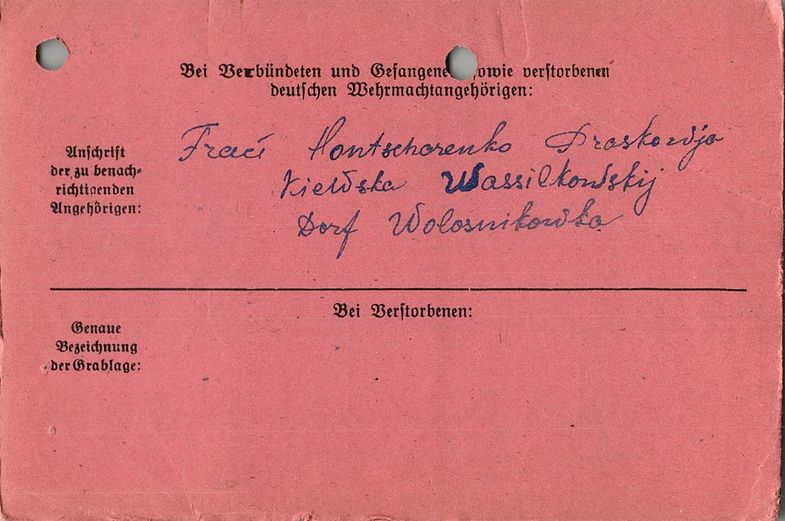 Bei Verbündeten und Gefangenen sowie verstorbenen
deutschen Wehrmachtangehörigen:
Anschrift
der zu benach-
richtigenden
Angehörigen:
Frau Hontscharenko Praskowja
Kiewska Wassilkowskij
Dorf Wolosnikowka
Bei Verstorbenen:
Genaue
Bezeichnung
der Grablage: